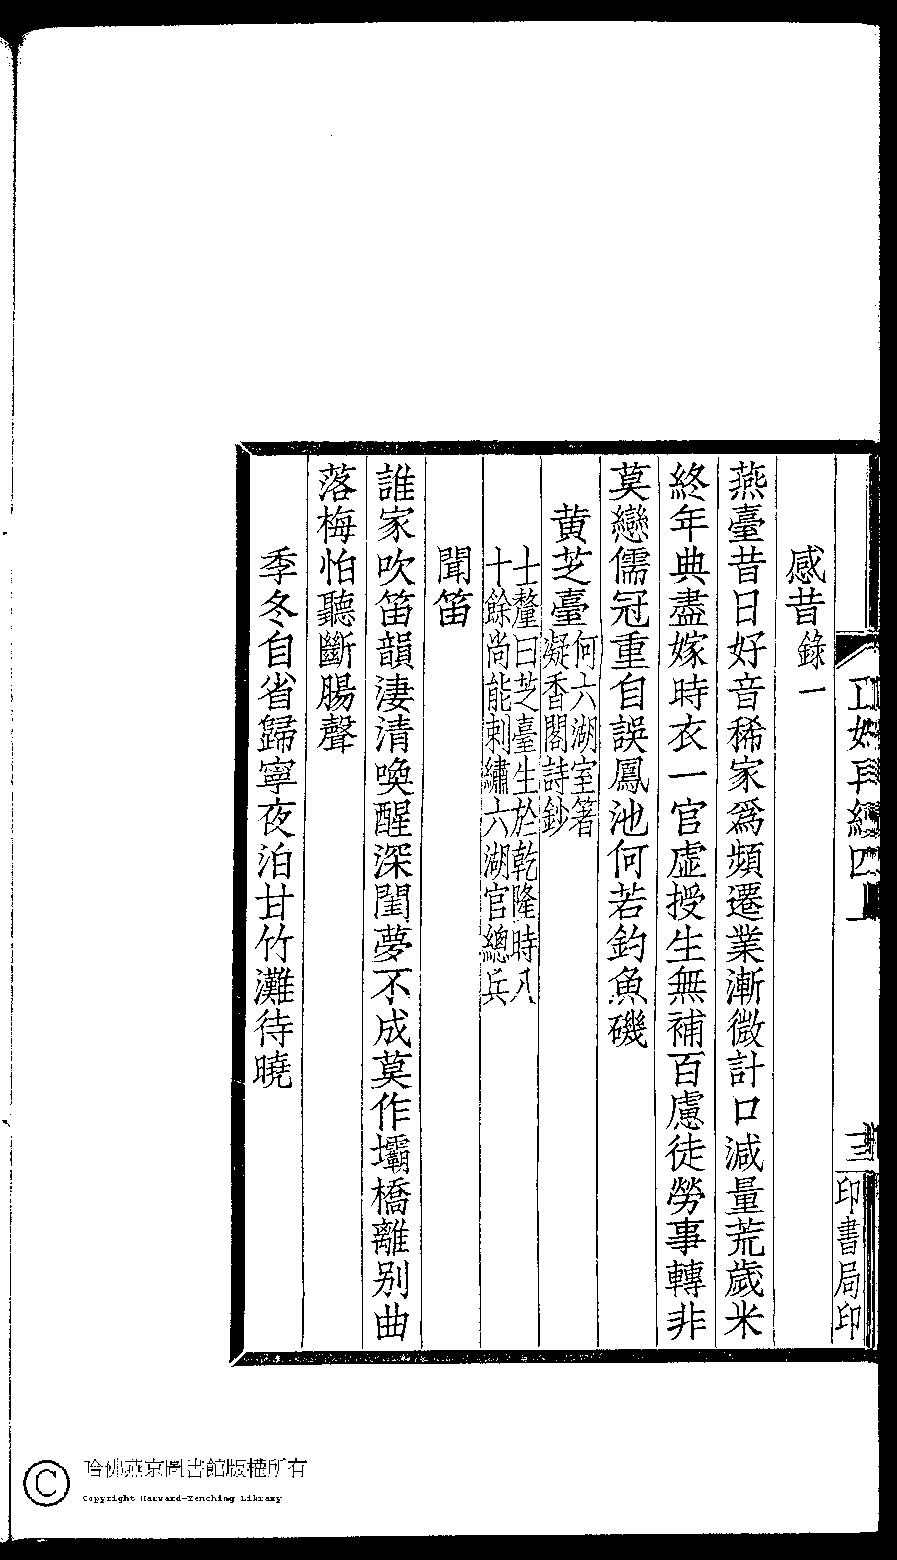 感昔錄一
燕臺昔日好音稀家爲頻遷業漸微計口減量荒歲米
終年典盡嫁時衣一官虛授生無補百慮徒勞事轉非
莫戀儒冠重自誤鳳池何若釣魚磯
黃芝臺
何六湖室箸
凝香閣詩鈔
士釐曰芝臺生於乾隆時八
十餘尚能刺繡六湖官總兵
聞笛
誰家吹笛韻淒清喚醒深閨夢不成莫作壩橋離別曲
落梅怕聽斷腸聲
季冬自省歸寧夜泊甘竹灘待曉
三
印書局印
哈佛燕京圖書館版權所有
Copyright Harvard-Yenching Library